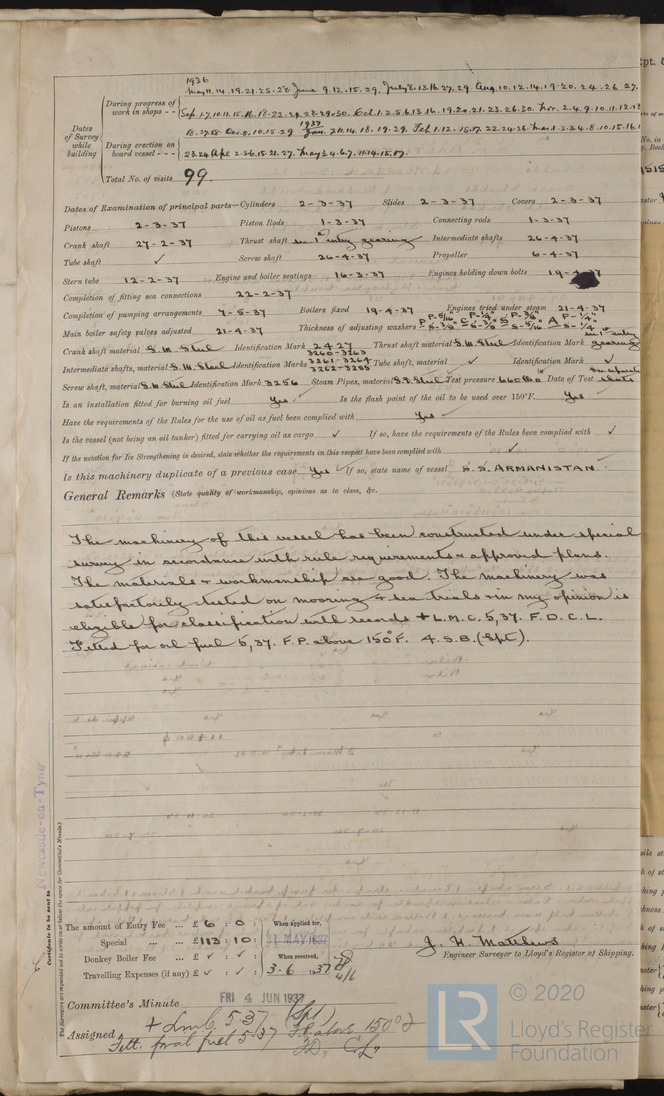 1936
May 11.14.19.21.25.28 June 9.12.15.29. July 8.13.16.27.29. Aug. 10.12.14.19.20.24.26 27.
During progress of work in shops - -
Sep. 1.7.10.11.15.16.18.22.24.28.29.30. Oct. 1.2.5.6.13.16.19.20.21.23.26.30. Nov. 2.4.9.10.11.12.13
1937
Dates of Survey while building
18.27.28 Dec. 9.10.15.29 Jan. 7.11.14.18.19.29. Feb 1.12.15.17.22.24.26 Mar. 1.2.3.4.8.10.15.16.1
During erection on board vessel - - -
23.24 Apl 2.3.6.15.21.27. May 3.4.6.7.11.14.15.19.
Total No. of visits 99.
Dates of Examination of principal parts—Cylinders 2-3-37 Slides 2-3-37 Covers 2-3-37
Pistons 2-3-37 Piston Rods 1-3-37 Connecting rods 1-3-37
Crank shaft 27-2-37 Thrust shaft in 1st entry gearing Intermediate shafts 26-4-37
Tube shaft ✓ Screw shaft 26-4-37 Propeller 6-4-37
Stern tube 12-2-37 Engine and boiler seatings 16-3-37 Engines holding down bolts 19-4-37
Completion of fitting sea connections 22-2-37
Completion of pumping arrangements 7-5-37 Boilers fixed 19-4-37 Engines tried under steam 21-4-37
Main boiler safety valves adjusted 21-4-37 Thickness of adjusting washers P P-5/16" S-3/8" C P-1/4" S-3/8" S P-3/8" S-5/16" A P-1/4" S-1/4"
Crank shaft material S.M. Steel Identification Mark 2427 Thrust shaft material S.M. Steel Identification Mark in 1st entry gearing
3260-3263
Intermediate shafts, material S.M. Steel Identification Marks 3261-3264 Tube shaft, material ✓ Identification Mark ✓
3262-3255
Screw shaft, material S.M. Steel Identification Mark 3256 Steam Pipes, material S.D. Steel Test pressure 660 lbs Date of Test See separate sheets
Is an installation fitted for burning oil fuel Yes ✓ Is the flash point of the oil to be used over 150°F. Yes
Have the requirements of the Rules for the use of oil as fuel been complied with Yes ✓
Is the vessel (not being an oil tanker) fitted for carrying oil as cargo ✓ If so, have the requirements of the Rules been complied with ✓
If the notation for Ice Strengthening is desired, state whether the requirements in this respect have been complied with ✓
Is this machinery duplicate of a previous case Yes ✓ If so, state name of vessel S.S. ARMANISTAN. ✓
General Remarks (State quality of workmanship, opinions as to class, &c.
The machinery of this vessel has been constructed under special
survey in accordance with rule requirements & approved plans.
The materials & workmanship are good. The machinery was
satisfactorily tested on mooring & sea trials & in my opinion is
eligible for classification with records + L.M.C. 5,37. F.D. C.L.
Fitted for oil fuel 5,37. F.P. above 150°F. 4.S.B. (Spt).
Newcastle-on-Tyne
Certificate to be sent to
The Surveyors are requested not to write on or below the space for Committee's Minute.)
The amount of Entry Fee ... £ 6 : 0 : When applied for,
Special ... ... £ 113 : 10 : 31 MAY 1937
Donkey Boiler Fee ... £ ✓ : ✓ : When received,
Travelling Expenses (if any) £ ✓ : ✓ : 3-6 1937 4/6
J. H. Matthews
Engineer Surveyor to Lloyd's Register of Shipping.
Committee's Minute FRI 4 JUN 1937
Assigned + LMC 5·37 (Spt)
Fitt. for oil fuel 5·37 F.P. above 150°F
FD, CL,
LR
© 2020
Lloyd's Register
Foundation